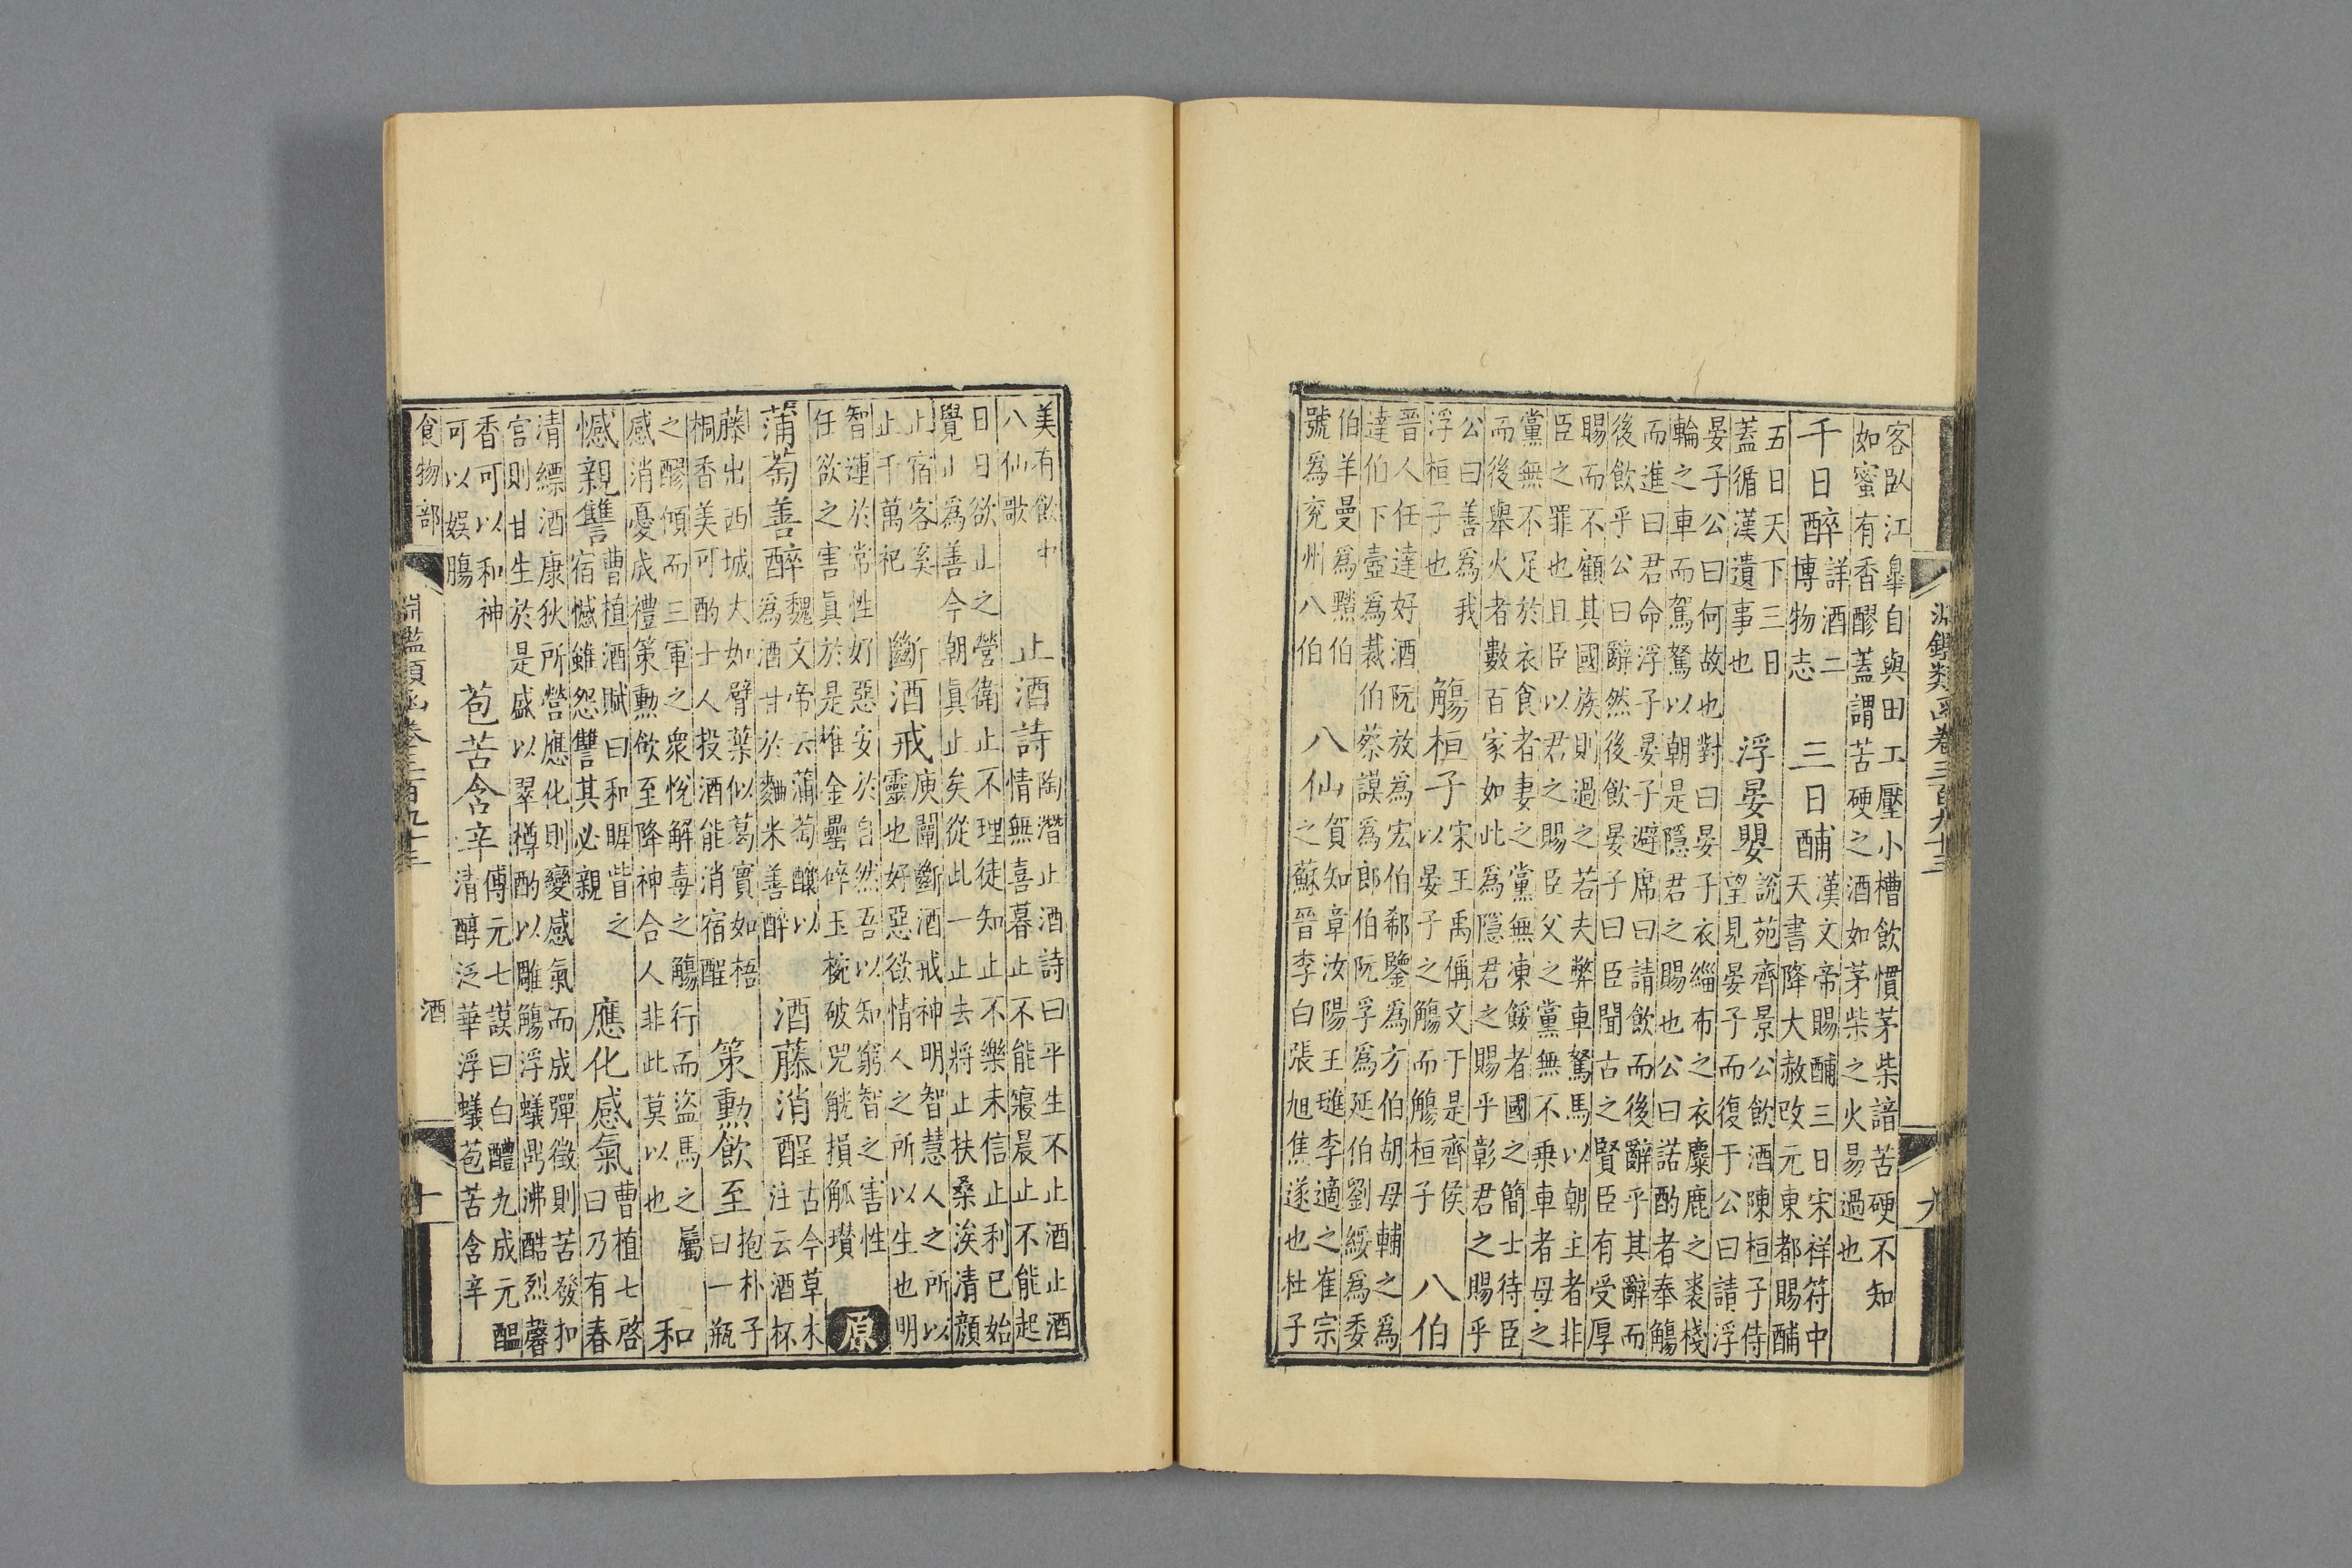 淵鑑類函卷三百九十三　九
客臥江皋自與田工壓小槽飲慣茅柴諳苦硬不知
如蜜有香醪蓋謂苦硬之酒如茅柴之火易過也
千日醉
詳酒二
博物志
三日酺
漢文帝賜酺三日宋祥符中
天書降大赦改元東都賜酺
五日天下三日
蓋循漢遺事也
浮晏嬰
說苑齊景公飲酒陳桓子侍
望見晏子而復于公曰請浮
晏子公曰何故也對曰晏子衣緇布之衣麋鹿之裘棧
輪之車而駕駑以朝是隱君之賜也公曰諾酌者奉觴
而進曰君命浮子晏子避席曰請飲而後辭乎其辭而
後飲乎公曰辭然後飲晏子曰臣聞古之賢臣有受厚
賜而不顧其國族則過之若夫弊車駑馬以朝主者非
臣之罪也且臣以君之賜臣父之黨無不乘車者母之
黨無不足於衣食者妻之黨無凍餒者國之簡士待臣
而後舉火者數百家如此爲隱君之賜乎彰君之賜乎
公曰善爲我
浮桓子也
觴桓子
宋王禹偁文于是齊侯
以晏子之觴而觴桓子
八伯
晉人任達好酒阮放爲宏伯郗鑒爲方伯胡母輔之爲
達伯卞壼爲裁伯蔡謨爲郎伯阮孚爲延伯劉綏爲委
伯羊曼爲黯伯
號爲兖州八伯
八仙
賀知章汝陽王璡李適之崔宗
之蘇晉李白張旭焦遂也杜子
美有飲中
八仙歌
止酒詩
陶潛止酒詩曰平生不止酒止酒
情無喜暮止不能寢晨止不能起
日日欲止之營衛止不理徒知止不樂未信止利已始
覺止爲善今朝眞止矣從此一止去將止扶桑涘清顏
止宿客奚
止千萬祀
斷酒戒
庾闡斷酒戒神明智慧人之所以
靈也好惡欲情人之所以生也明
智運於常性好惡安於自然吾以知窮智之害性
任欲之害眞於是椎金罍碎玉椀破兕觥損觚瓚
原
蒲萄善醉
魏文帝云蒲萄釀以
爲酒甘於麴米善醉
酒藤消酲
古今草木
注云酒杯
藤出西城大如臂葉似葛實如梧
桐香美可酌士人投酒能消宿酲
策勳飲至
抱朴子
曰一瓶
之醪傾而三軍之衆悅解毒之觴行而盜馬之屬
感消憂成禮策勳飲至降神合人非此莫以也
和
憾親讐
曹植酒賦曰和睚眥之
宿憾雖怨讐其必親
應化感氣
曹植七啓
曰乃有春
清縹酒康狄所營應化則變感氣而成彈徵則苦發扣
宮則甘生於是盛以翠樽酌以雕觴浮蟻鼎沸酷烈馨
香可以和神
可以娛腸
苞苦含辛
傅元七謨曰白醴九成元醖
清醇泛華浮蟻苞苦含辛
食物部　淵鑑類函卷三百九十三　酒　十